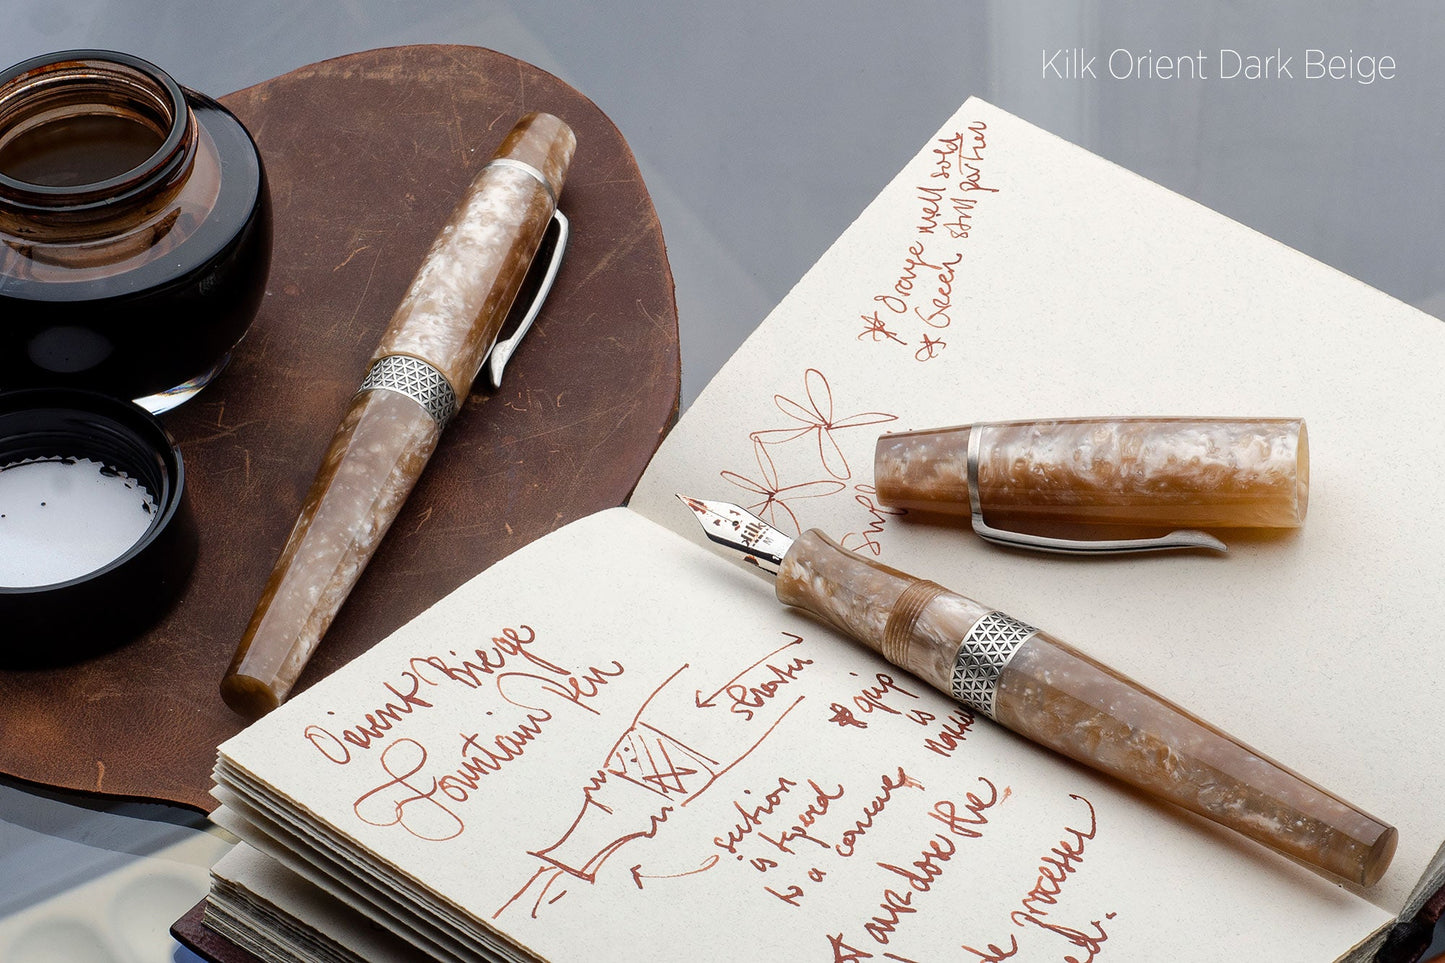 Kilk Orient Dark Beige
* Orange well sold
* Green still parties
kilk
M
Orient Biege
Fountain Pen
* grip
is
section
is tyered
to a concave
not overdose the
processes